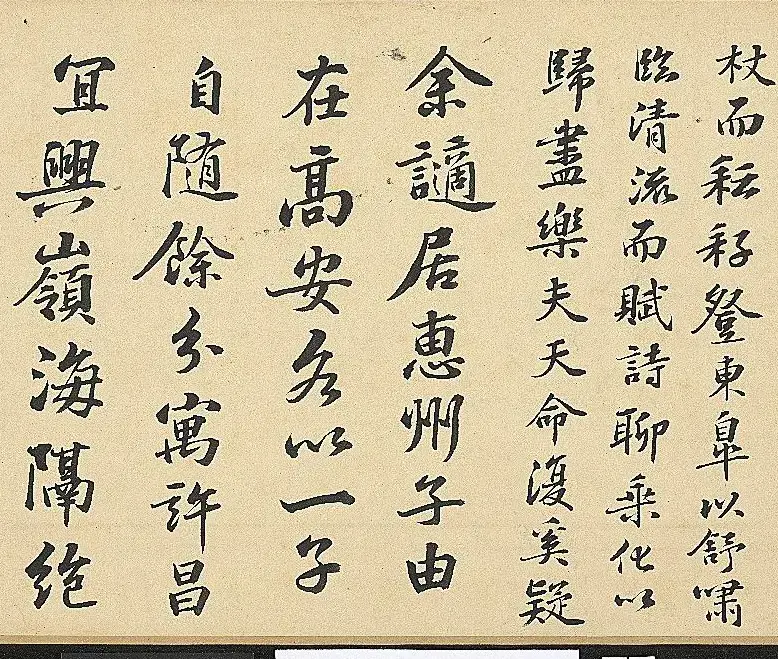 杖而耘耔登東皐以舒嘯
臨清流而賦詩聊乘化以
歸盡樂夫天命復奚疑
余謫居惠州子由
在高安各以一子
自隨餘分寓許昌
宜興嶺海隔絕